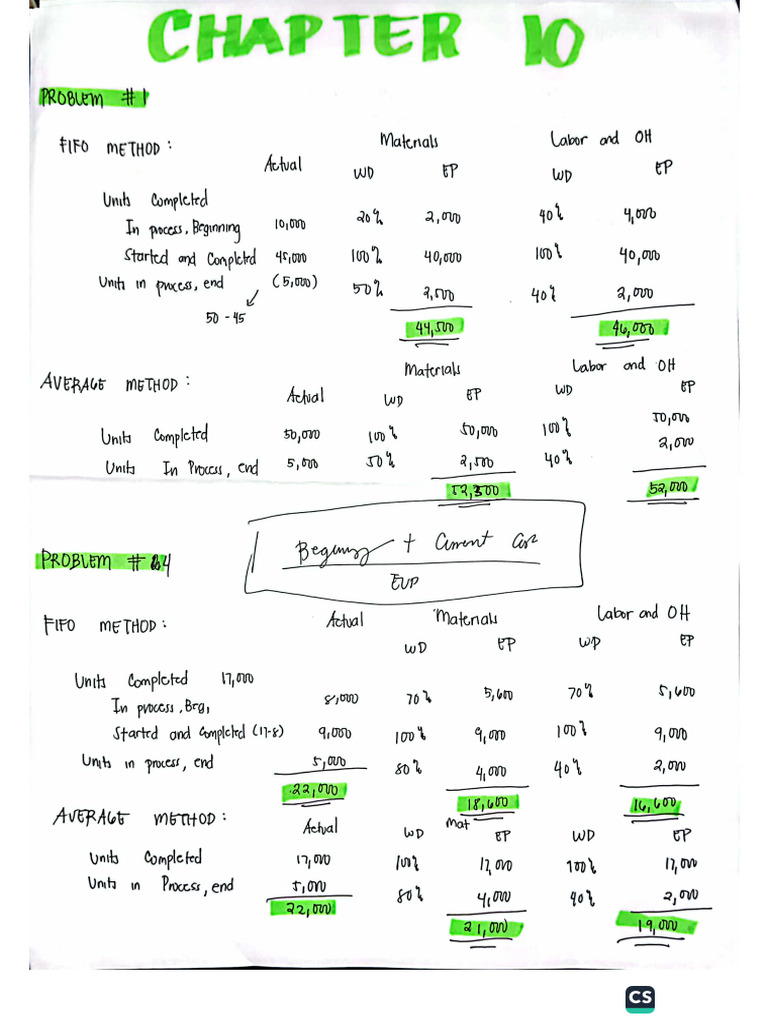 CHAPTER 10
PROBLEM #1
FIFO METHOD: Materials Labor and OH
Actual WD EP WD EP
Units Completed
In process, Beginning 10,000 20% 2,000 40% 4,000
Started and Completed 45,000 100% 40,000 100% 40,000
Units in process, end (5,000) 50% 2,500 40% 2,000
50 - 45
44,500 46,000
AVERAGE METHOD: Materials Labor and OH
Actual WD EP WD EP
Units Completed 50,000 100% 50,000 100% 50,000
Units In Process, end 5,000 50% 2,500 40% 2,000
52,500 52,000
Beginning + Current Cost
EUP
PROBLEM # 4
FIFO METHOD: Actual Materials Labor and OH
WD EP WD EP
Units Completed 17,000
In process, Beg, 8,000 70% 5,600 70% 5,600
Started and Completed (17-8) 9,000 100% 9,000 100% 9,000
Units in process, end 5,000 80% 4,000 40% 2,000
22,000 18,600 16,600
AVERAGE METHOD: Actual Mat
WD EP WD EP
Units Completed 17,000 100% 17,000 100% 17,000
Units in Process, end 5,000 80% 4,000 40% 2,000
22,000 21,000 19,000
CS